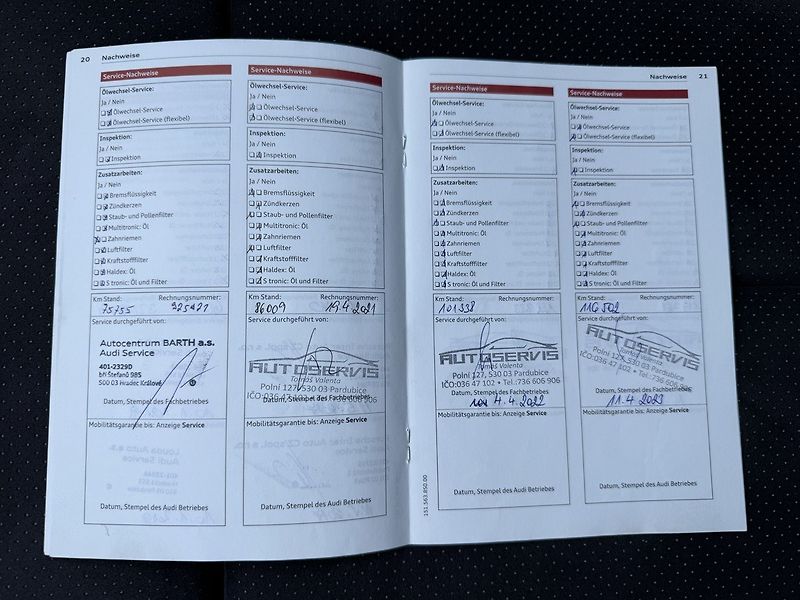 20 Nachweise
Service-Nachweise
Ölwechsel-Service:
Ja / Nein
Ölwechsel-Service
Ölwechsel-Service (flexibel)
Inspektion:
Ja / Nein
Inspektion
Zusatzarbeiten:
Ja / Nein
Bremsflüssigkeit
Zündkerzen
Staub- und Pollenfilter
Multitronic: Öl
Zahnriemen
Luftfilter
Kraftstofffilter
Haldex: Öl
S tronic: Öl und Filter
Km Stand: Rechnungsnummer:
75755
Service durchgeführt von:
Autocentrum BARTH a.s.
Audi Service
401-2329D
bří Štefanů 985
500 03 Hradec Králové
Datum, Stempel des Fachbetriebes
Mobilitätsgarantie bis: Anzeige Service
Datum, Stempel des Audi Betriebes
Service-Nachweise
Ölwechsel-Service:
Ja / Nein
Ölwechsel-Service
Ölwechsel-Service (flexibel)
Inspektion:
Ja / Nein
Inspektion
Zusatzarbeiten:
Ja / Nein
Bremsflüssigkeit
Zündkerzen
Staub- und Pollenfilter
Multitronic: Öl
Zahnriemen
Luftfilter
Kraftstofffilter
Haldex: Öl
S tronic: Öl und Filter
Km Stand: Rechnungsnummer:
86009 19.4.2021
Service durchgeführt von:
AUTOSERVIS
Tomáš Valenta
Polní 127, 530 03 Pardubice
IČO:036 47 102 • Tel.:736 606 906
Datum, Stempel des Fachbetriebes
Mobilitätsgarantie bis: Anzeige Service
Datum, Stempel des Audi Betriebes
Nachweise 21
Service-Nachweise
Ölwechsel-Service:
Ja / Nein
Ölwechsel-Service
Ölwechsel-Service (flexibel)
Inspektion:
Ja / Nein
Inspektion
Zusatzarbeiten:
Ja / Nein
Bremsflüssigkeit
Zündkerzen
Staub- und Pollenfilter
Multitronic: Öl
Zahnriemen
Luftfilter
Kraftstofffilter
Haldex: Öl
S tronic: Öl und Filter
Km Stand: Rechnungsnummer:
101338
Service durchgeführt von:
AUTOSERVIS
Tomáš Valenta
Polní 127, 530 03 Pardubice
IČO:036 47 102 • Tel.:736 606 906
Datum, Stempel des Fachbetriebes
4.4.2022
Mobilitätsgarantie bis: Anzeige Service
Datum, Stempel des Audi Betriebes
151.563.850.00
Service-Nachweise
Ölwechsel-Service:
Ja / Nein
Ölwechsel-Service
Ölwechsel-Service (flexibel)
Inspektion:
Ja / Nein
Inspektion
Zusatzarbeiten:
Ja / Nein
Bremsflüssigkeit
Zündkerzen
Staub- und Pollenfilter
Multitronic: Öl
Zahnriemen
Luftfilter
Kraftstofffilter
Haldex: Öl
S tronic: Öl und Filter
Km Stand: Rechnungsnummer:
116502
Service durchgeführt von:
AUTOSERVIS
Tomáš Valenta
Polní 127, 530 03 Pardubice
IČO:036 47 102 • Tel.:736 606 906
Datum, Stempel des Fachbetriebes
11.4.2023
Mobilitätsgarantie bis: Anzeige Service
Datum, Stempel des Audi Betriebes